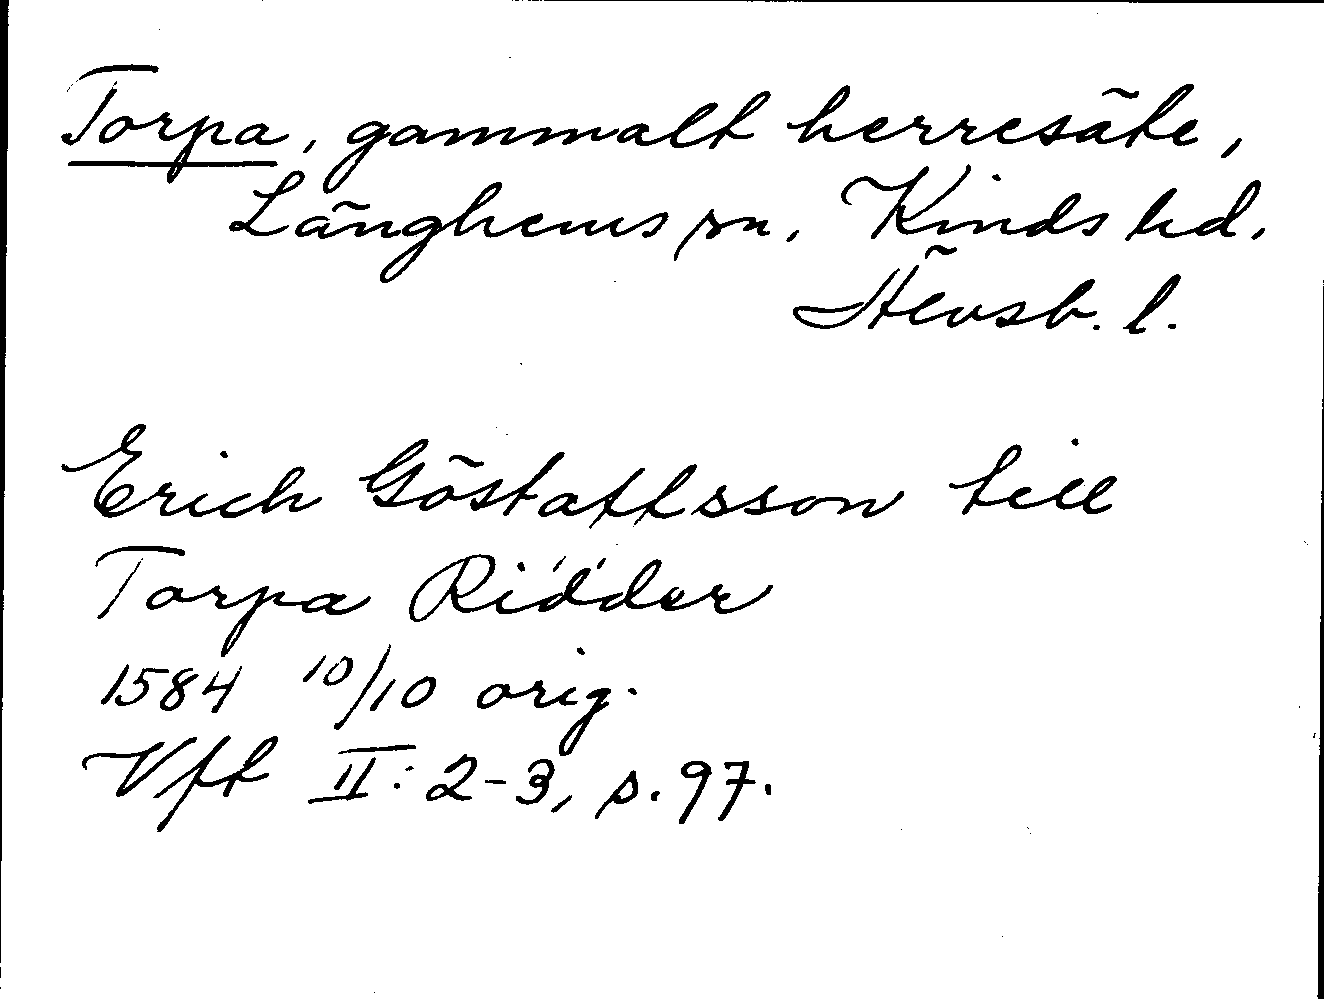 Torpa, gammalt herresäte,
Länghems sn, Kinds hd,
Älvsb. l.
Erich Göstaffsson till
Torpa Ridder
1584 10/10 orig.
Vft II: 2-3, s. 97.